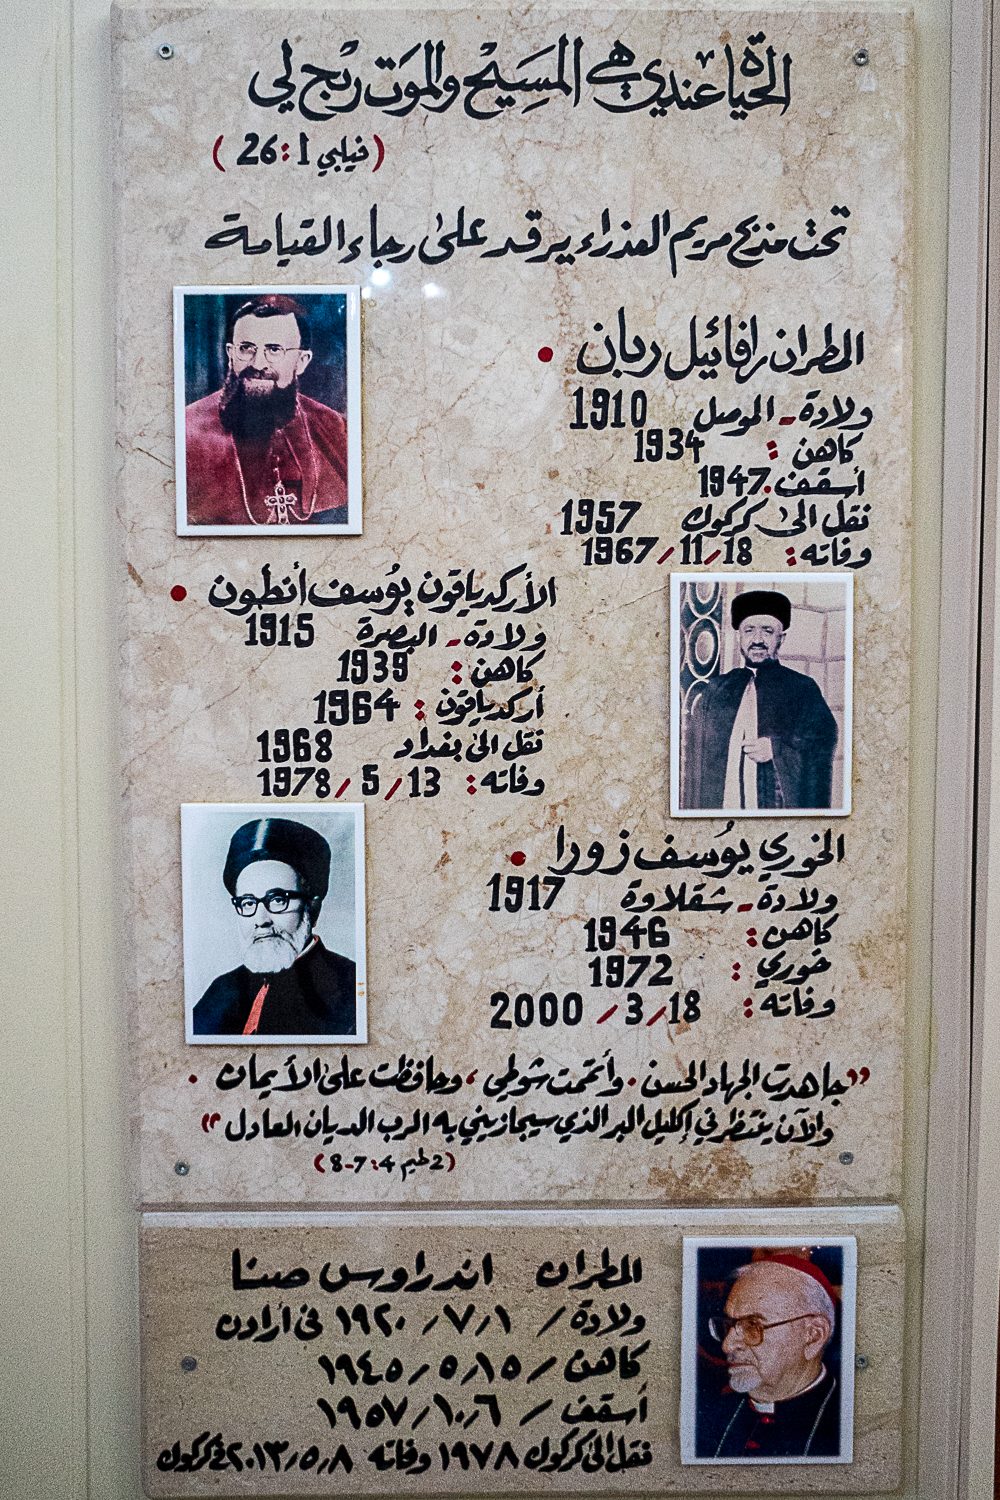 الحياة عندي هي المَسِيْح والموَت ربْح لي
(فيلبي 1:26)
تحت مذبح مريم العذراء يرقد على رجاء القيامة
المطران رافائيل ربان •
ولادة - الموصل 1910
كاهن : 1934
أسقف . 1947
نقل الى كركوك 1957
وفاته : 18/11/1967
الأركدياقون يوُسف أنطون •
ولادة - البصرة 1915
كاهن : 1939
أركدياقون : 1964
نقل الى بغداد 1968
وفاته : 13/5/1978
الخوري يوُسف زورا •
ولادة - شقلاوة 1917
كاهن : 1946
خوري : 1972
وفاته : 18/3/2000
"جاهدت الجهاد الحسن . وأتممت شوطي ، وحافظت على الأيمان .
والآن ينتظرني إكليل البر الذي سيجازيني به الرب الديان العادل"
(2 طيم 4:7-8)
المطران اندراوس صنا
ولادة / ١/٧/١٩٢٠ في أرادن
كاهن / ١٥/٥/١٩٤٥
أسقف / ٦/١٠/١٩٥٧
نقل الى كركوك ١٩٧٨ وفاته ٨/٥/٢٠١٣ في كركوك